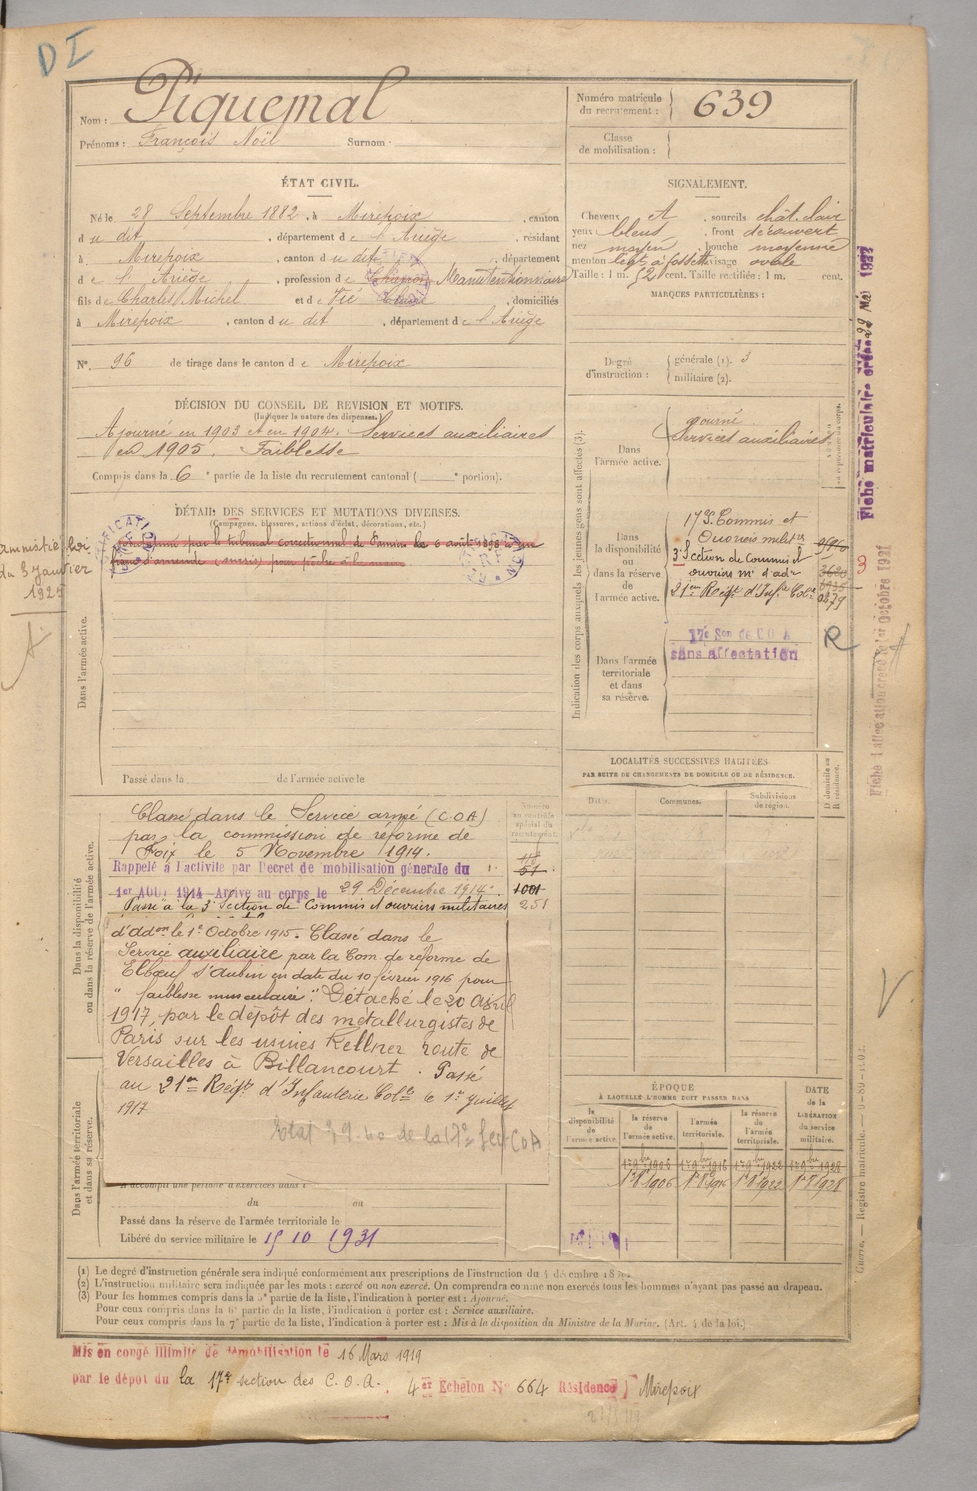 DI
Nom : Piquemal
Prénoms : François Noël Surnom :
Numéro matricule du recrutement : 639
Classe de mobilisation :
ÉTAT CIVIL.
Né le 28 Septembre 1882, à Mirepoix, canton
du dit, département de l'Ariège, résidant
à Mirepoix, canton du dit, département
de l'Ariège, profession de Manutentionnaire
fils de Charles Michel et de Vié, domiciliés
à Mirepoix, canton du dit, département de l'Ariège
N° 96 de tirage dans le canton de Mirepoix
SIGNALEMENT.
Cheveux et, sourcils chât. clair
yeux bleus, front découvert
nez moyen, bouche moyenne
menton légt à fossette visage ovale
Taille : 1 m. 52 cent. Taille rectifiée : 1 m. cent.
MARQUES PARTICULIÈRES :
Degré d'instruction : générale (1). 3
militaire (2).
DÉCISION DU CONSEIL DE REVISION ET MOTIFS.
(Indiquer la nature des dispenses.)
Ajourné en 1903 et en 1904. Services auxiliaires
en 1905. Faiblesse
Compris dans la 6e partie de la liste du recrutement cantonal ( e portion).
DÉTAIL DES SERVICES ET MUTATIONS DIVERSES.
(Campagnes, blessures, actions d'éclat, décorations, etc.)
par le tribunal correctionnel de Pamiers le 6 août 1898 à un
franc d'amende (sursis) pour pêche à la main
Amnistié loi
du 3 Janvier
1925
Dans l'armée active.
Passé dans la de l'armée active le
Indication des corps auxquels les jeunes gens sont affectés (3).
Dans l'armée active.
ajourné
Services auxiliaires
Dans la disponibilité ou dans la réserve de l'armée active.
17 S. Commis et
Ouvriers milit rs
3e Section de Commis et
ouvriers m. d'adn
21eme Régt d'Infie Colle
0879
3
R
Dans l'armée territoriale et dans sa réserve.
17e Son de C O A
sans affectation
Fiche matriculaire créée 22 Mai 1927
Fiche d'affectation créée le 1er Octobre 1921
LOCALITÉS SUCCESSIVES HABITÉES
PAR SUITE DE CHANGEMENTS DE DOMICILE OU DE RÉSIDENCE.
Dates. Communes. Subdivisions de région. D domicile ou R résidence.
Dans la disponibilité ou dans la réserve de l'armée active.
Numéro au contrôle spécial du recrutement.
Classé dans le Service armé (C.O.A)
par la commission de réforme de
Foix le 5 Novembre 1914.
Rappelé à l'activité par Decret de mobilisation générale du
1er AOUT 1914 - Arrivé au corps le 29 Décembre 1914.
Passé à la 3e Section de Commis et ouvriers militaires
51
1001
251
d'adon le 1er Octobre 1915. Classé dans le
Service auxiliaire par la Com de réforme de
Elbœuf St Aubin en date du 10 février 1916 pour
" faiblesse musculaire ". Détaché le 20 Avril
1917, par le dépôt des métallurgistes de
Paris sur les usines Kellner route de
Versailles à Billancourt. Passé
au 21em Régt d'Infanterie Colle le 1er Juillet
1917
de la 17e Sect COA
Dans l'armée territoriale et dans sa réserve.
A accompli une période d'exercices dans l
du au
Passé dans la réserve de l'armée territoriale le
Libéré du service militaire le 15 10 1931
ÉPOQUE
À LAQUELLE L'HOMME DOIT PASSER DANS
la disponibilité de l'armée active. la réserve de l'armée active. l'armée territoriale. la réserve de l'armée territoriale.
DATE de la LIBÉRATION du service militaire.
1er 9bre 1906 1er 9bre 1916 1er 9bre 1922 1er 9bre 1928
1er 8 1906 1er 8 1916 1er 8 1922 1er 8 1928
V.
Guerre. — Registre matricule.
(1) Le degré d'instruction générale sera indiqué conformément aux prescriptions de l'instruction du 4 décembre
(2) L'instruction militaire sera indiquée par les mots : exercé ou non exercé. On comprendra comme non exercés tous les hommes n'ayant pas passé au drapeau.
(3) Pour les hommes compris dans la 5e partie de la liste, l'indication à porter est : Ajourné.
Pour ceux compris dans la 6e partie de la liste, l'indication à porter est : Service auxiliaire.
Pour ceux compris dans la 7e partie de la liste, l'indication à porter est : Mis à la disposition du Ministre de la Marine. (Art. 4 de la loi.)
Mis en congé illimité de démobilisation le 16 Mars 1919
par le dépot du la 17e section des C. O. A. 4er Echelon N° 664 Résidence Mirepoix